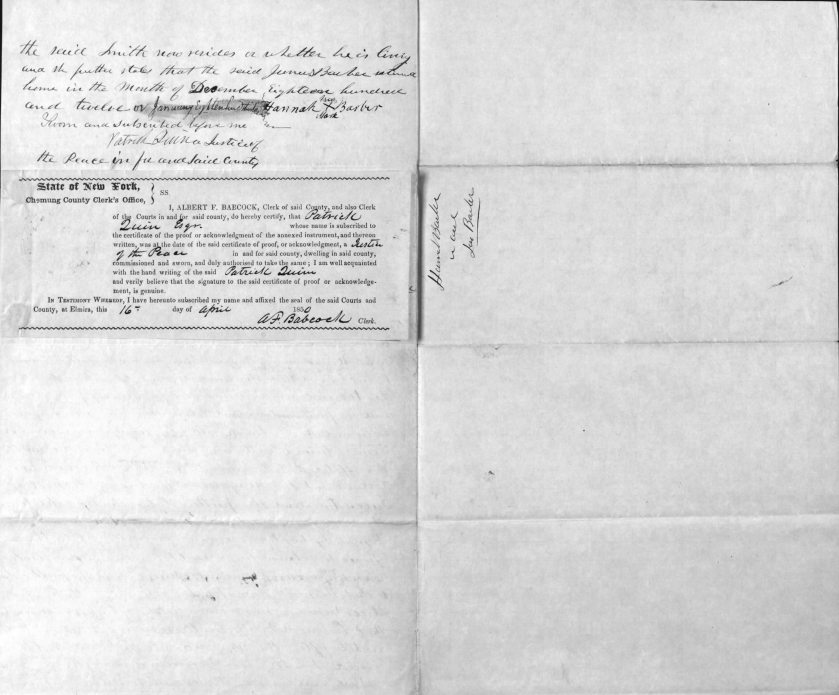 the said Smith now resides or whether he is living
and she further states that the said James Barber returned
home in the Month of December Eighteen hundred
and twelve or January Eighteen hundred Hannah her X mark Barber
Sworn and subscribed before me
Patrick Quin a Justice of
the Peace in for and said County
State of New York,
Chemung County Clerk's Office, } SS
I, ALBERT F. BABCOCK, Clerk of said County, and also Clerk
of the Courts in and for said county, do hereby certify, that Patrick
Quin Esqr. whose name is subscribed to
the certificate of the proof or acknowledgment of the annexed instrument, and thereon
written, was at the date of the said certificate of proof, or acknowledgment, a Justice
of the Peace in and for said county, dwelling in said county,
commissioned and sworn, and duly authorised to take the same; I am well acquainted
with the hand writing of the said Patrick Quinn
and verily believe that the signature to the said certificate of proof or acknowledge-
ment, is genuine.
IN TESTIMONY WHEREOF, I have hereunto subscribed my name and affixed the seal of the said Courts and
County, at Elmira, this 16 day of April 1850
A.F. Babcock Clerk.
Barber
Barber